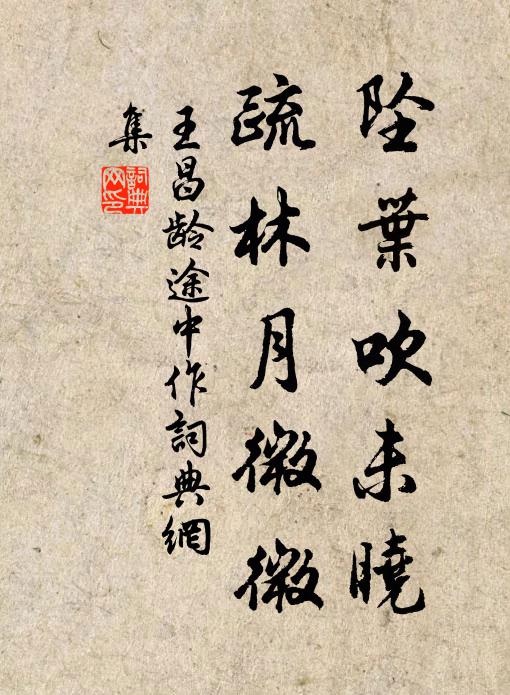 坠葉吹未曉
疏林月微微
王昌龄途中作詞典網
集
詞典
网印